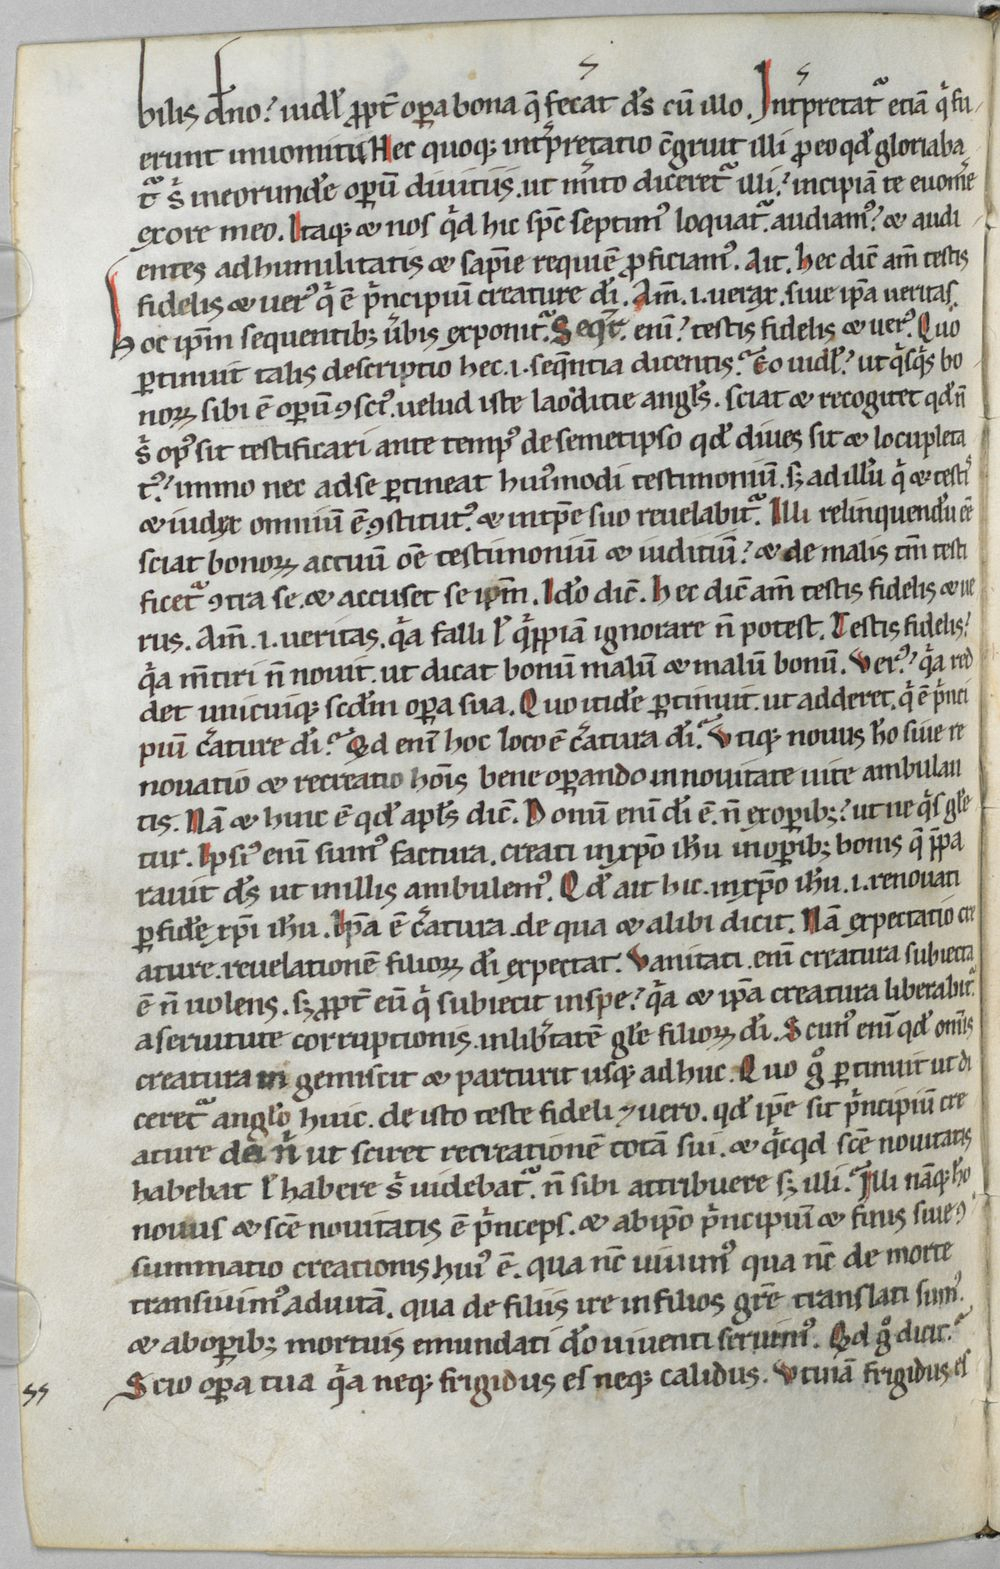 bilis dn̄o? uidel̄ ꝓpt̄ oꝑa bona q̄ fecat d̄s cū illo. Int̄pretatᷓ etiā q̓ fu
erunt in uomitu. Hec quoqꝫ int̄pretatio c̄gruit illi pro eo qd̄ gloriaba
tᷓ s̓ in eorund̄e oꝑū diuitiis. ut m̓ito diceretᷓ illi? incipiā te euom̓e
ex ore meo. Itaqꝫ & nos q̓d hic sp̄c septimꝰ loquatᷓ. audiamꝰ? & audi
entes ad humilitatis & sap̄ie requiē proficiamꝰ. Ait. Hec dic̄ am̄ testis
fidelis & uerꝰ q̓ ē p̓ncipiū creature dī. Am̄ .i. uerax. siue ip̄a ueritas.
Hoc ip̄m sequentibꝫ ūbis exponitᷓ. Seqᷓt. enī? testis fidelis & uerꝰ. Quo
ꝑtinuit talis descriptio hec .i. seq̄ntia dicentis? Eo uidel̄? ut q̓sq̓s bo
noꝝ sibi ē oꝑū ꝯsciꝰ. uelud iste laoditie angl̄s. sciat & recogitet qd̄ n̄
s̓ opꝰ sit testificari ante tempꝰ de semetipso qd̄ diues sit & locupleta
tꝰ? immo nec ad se ꝑtineat huiꝰmodi testimoniū. sꝫ ad illū q̓ & testis
& iudex omniū ē ꝯstitutꝰ. & in tp̄e suo reuelabitᷓ. Illi relinquendū ēe
sciat bonoꝝ actuū om̄e testimoniū & iuditiū? & de malis tm̄ testi
ficetᷓ ꝯtra se. & accuset se ip̄m. Id̄o dic̄. Hec dic̄ am̄ testis fidelis & ue
rus. Am̄ .i. ueritas. q̓a falli l̄ q̓ppiā ignorare n̄ potest. Testis fidelis?
q̓a m̄tiri n̄ nouit. ut dicat bonū malū & malū bonū. Verꝰ? q̓a red
det unicuiqꝫ scd̄m oꝑa sua. Quo itid̄e ꝑtinuit. ut adderet. q̓ ē p̓nci
piū c̓ature dī? Qd enī hoc loco ē c̓atura dī? Vtiqꝫ nouus h̄o siue re
nouatio & recreatio hoīs bene oꝑando in nouitate uite ambulan
tis. Nā & huic ē qd̄ apl̄s dic̄. Donū enī dī ē. n̄ ex oꝑibꝫ? ut ne q̓s gl̄e
tur. Ipsiꝰ enī sumꝰ factura. creati in xp̄o ihū in oꝑibꝫ bonis q̄ p̄pa
rauit d̄s ut in illis ambulemꝰ. Qd̄ ait hic. in xp̄o ihū .i. renouati
ꝑ fidē xp̄i ihū. Ip̄a ē c̓atura. de qua & alibi dicit. Nā expectatio cre
ature. reuelationē filioꝝ dī expectat. Vanitati. enī creatura subiecta
ē n̄ uolens. sꝫ ꝓpt̄ eū q̓ subiecit in spe? q̓a & ip̄a creatura liberabitᷓ
a seruitute corruptionis. in lib̓tatē gl̄e filioꝝ dī. Scimꝰ enī qd̄ om̄is
creatura ingemiscit & parturit usqꝫ adhuc. Quo g̊ ꝑtinuit ut di
ceretᷓ angl̄o huic. de isto teste fideli ⁊ uero. qd̄ ip̄e sit p̓ncipiū cre
ature dei n̓ ut sciret recreationē totā sui. & q̓cqd sc̄e nouitatis
habebat l̄ habere s̓ uidebatᷓ. n̄ sibi attribuere sꝫ illi? Illi nāqꝫ h̄o
nouus & sc̄e nouitatis ē p̓nceps. & ab ip̄o p̓ncipiū & finis siue ꝯ
summatio creationis huiꝰ ē. qua nc̄ uiuimꝰ qua nc̄ de morte
transiuimꝰ ad uitā. qua de filiis ire in filios gr̄e translati sumꝰ.
& ab oꝑibꝫ mortuis emundati d̄o uiuenti seruimꝰ. Qd g̊ dicit?
Scio oꝑa tua q̓a neqꝫ frigidus es neqꝫ calidus. Vtinā frigidus es